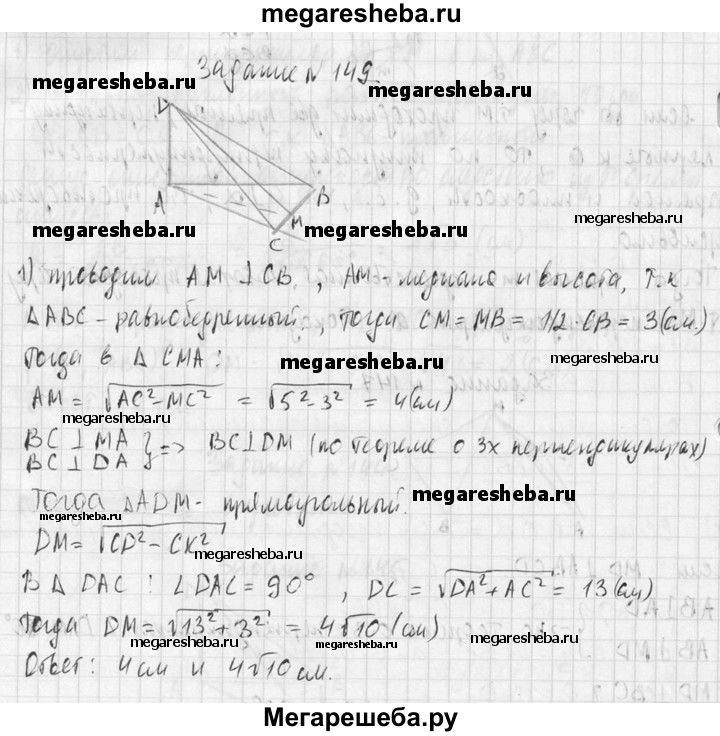 megaresheba.ru
Задание №149
megaresheba.ru
megaresheba.ru
D
A
B
M
C
megaresheba.ru
megaresheba.ru
megaresheba.ru
1) проводим AM ⊥ CB, AM - медиана и высота, т.к
△ABC - равнобедренный, тогда CM = MB = 1/2·CB = 3(см.)
Тогда в △ CMA:
megaresheba.ru
megaresheba.ru
AM = √AC²-MC² = √5²-3² = 4(см)
megaresheba.ru
megaresheba.ru
BC ⊥ MA
BC ⊥ DA } => BC⊥DM (по теореме о 3х перпендикулярах)
Тогда △ADM - прямоугольный.
megaresheba.ru
megaresheba.ru
DM = √CD²-CK²
megaresheba.ru
В △ DAC: ∠DAC = 90°, DC = √DA²+AC² = 13(см)
megaresheba.ru
Тогда DM = √13²+3² = 4√10(см)
megaresheba.ru
megaresheba.ru
megaresheba.ru
Ответ: 4см и 4√10см.
megaresheba.ru
Мегарешеба.ру